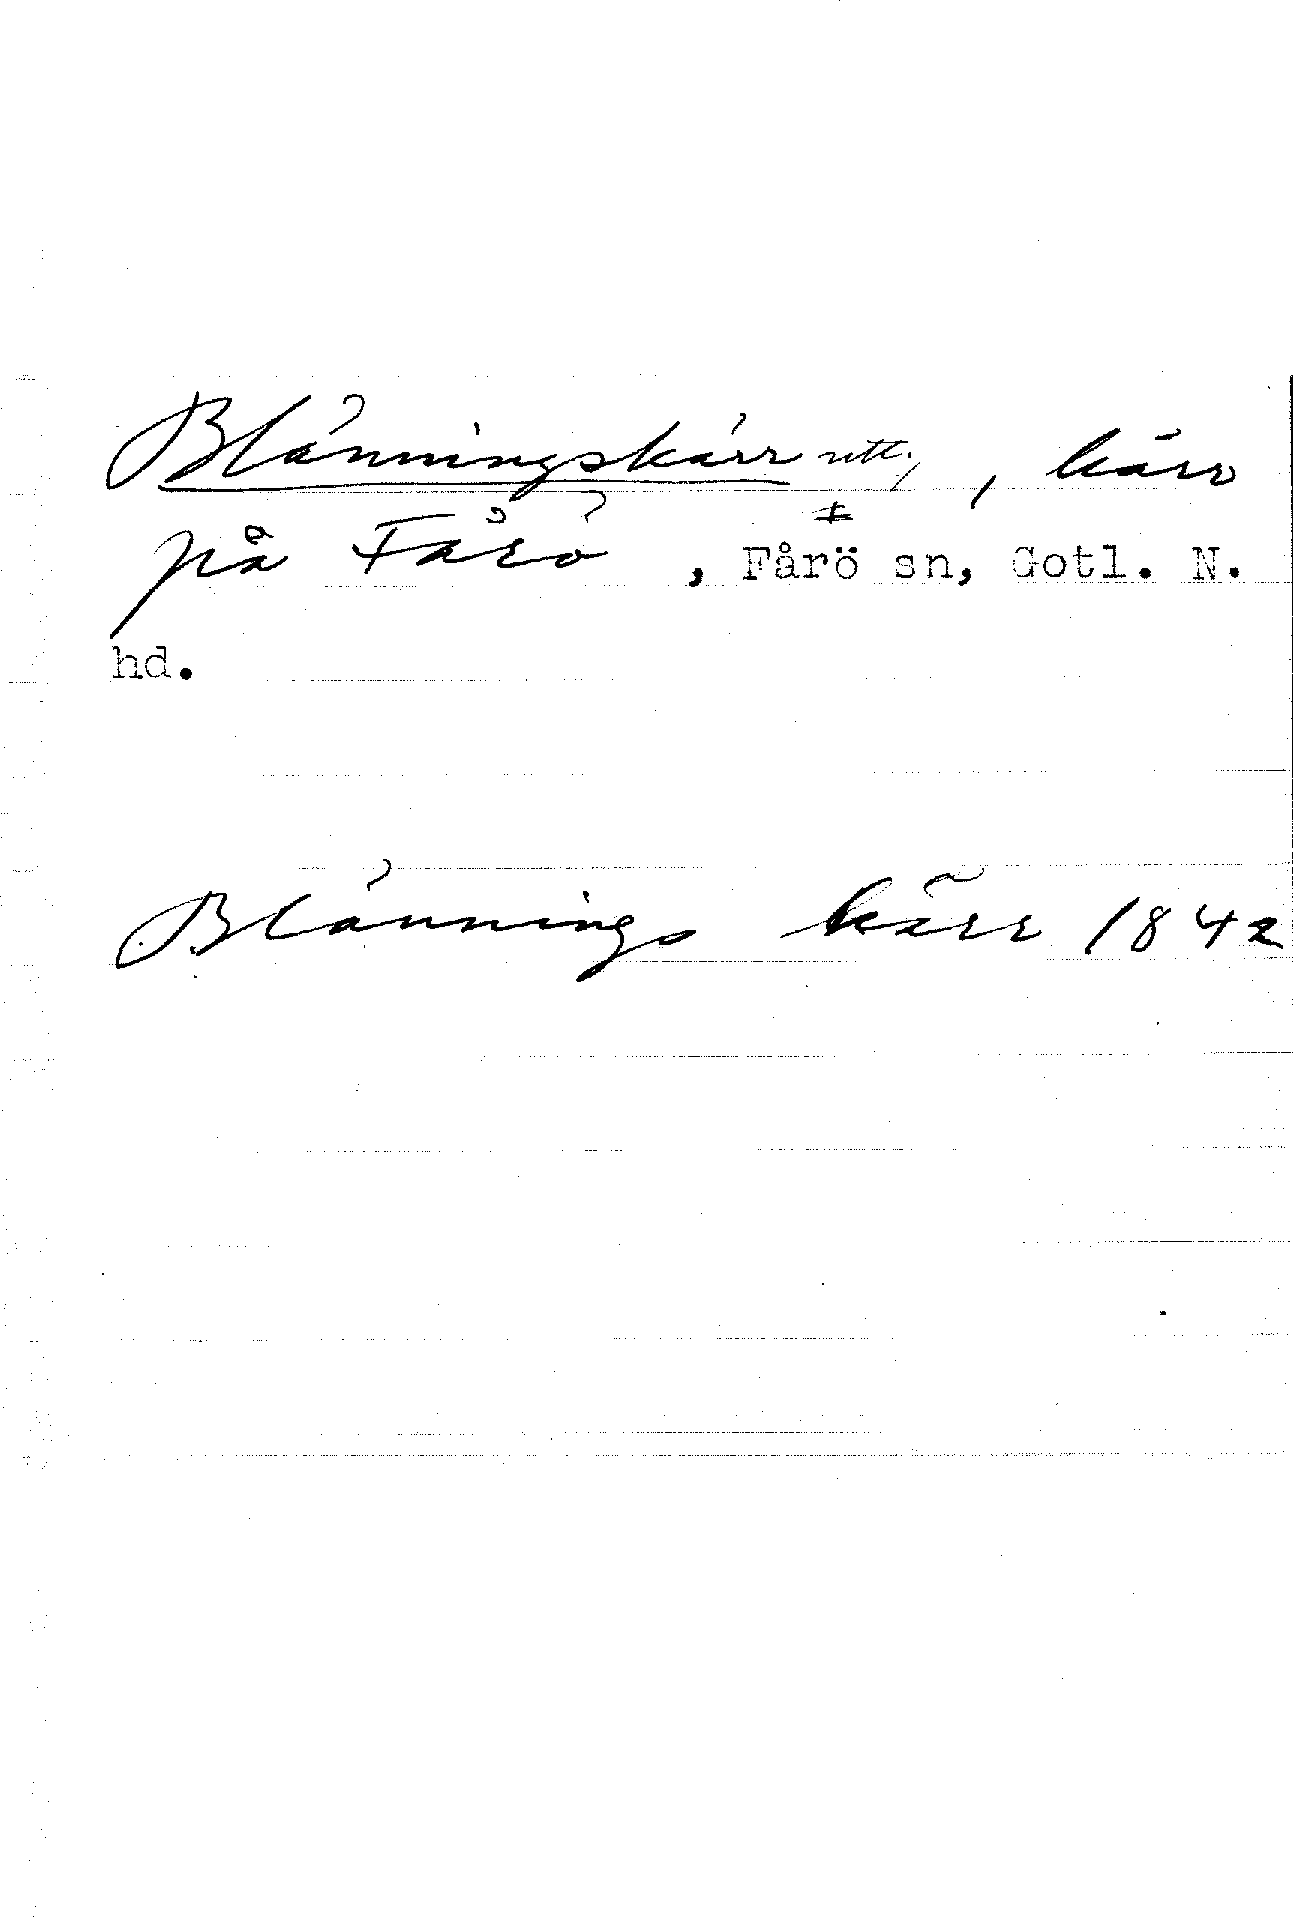 Blånningskärr utt., kärr
på Fårö ‡, Fårö sn, Gotl. N.
hd.
Blånnings kärr 1842